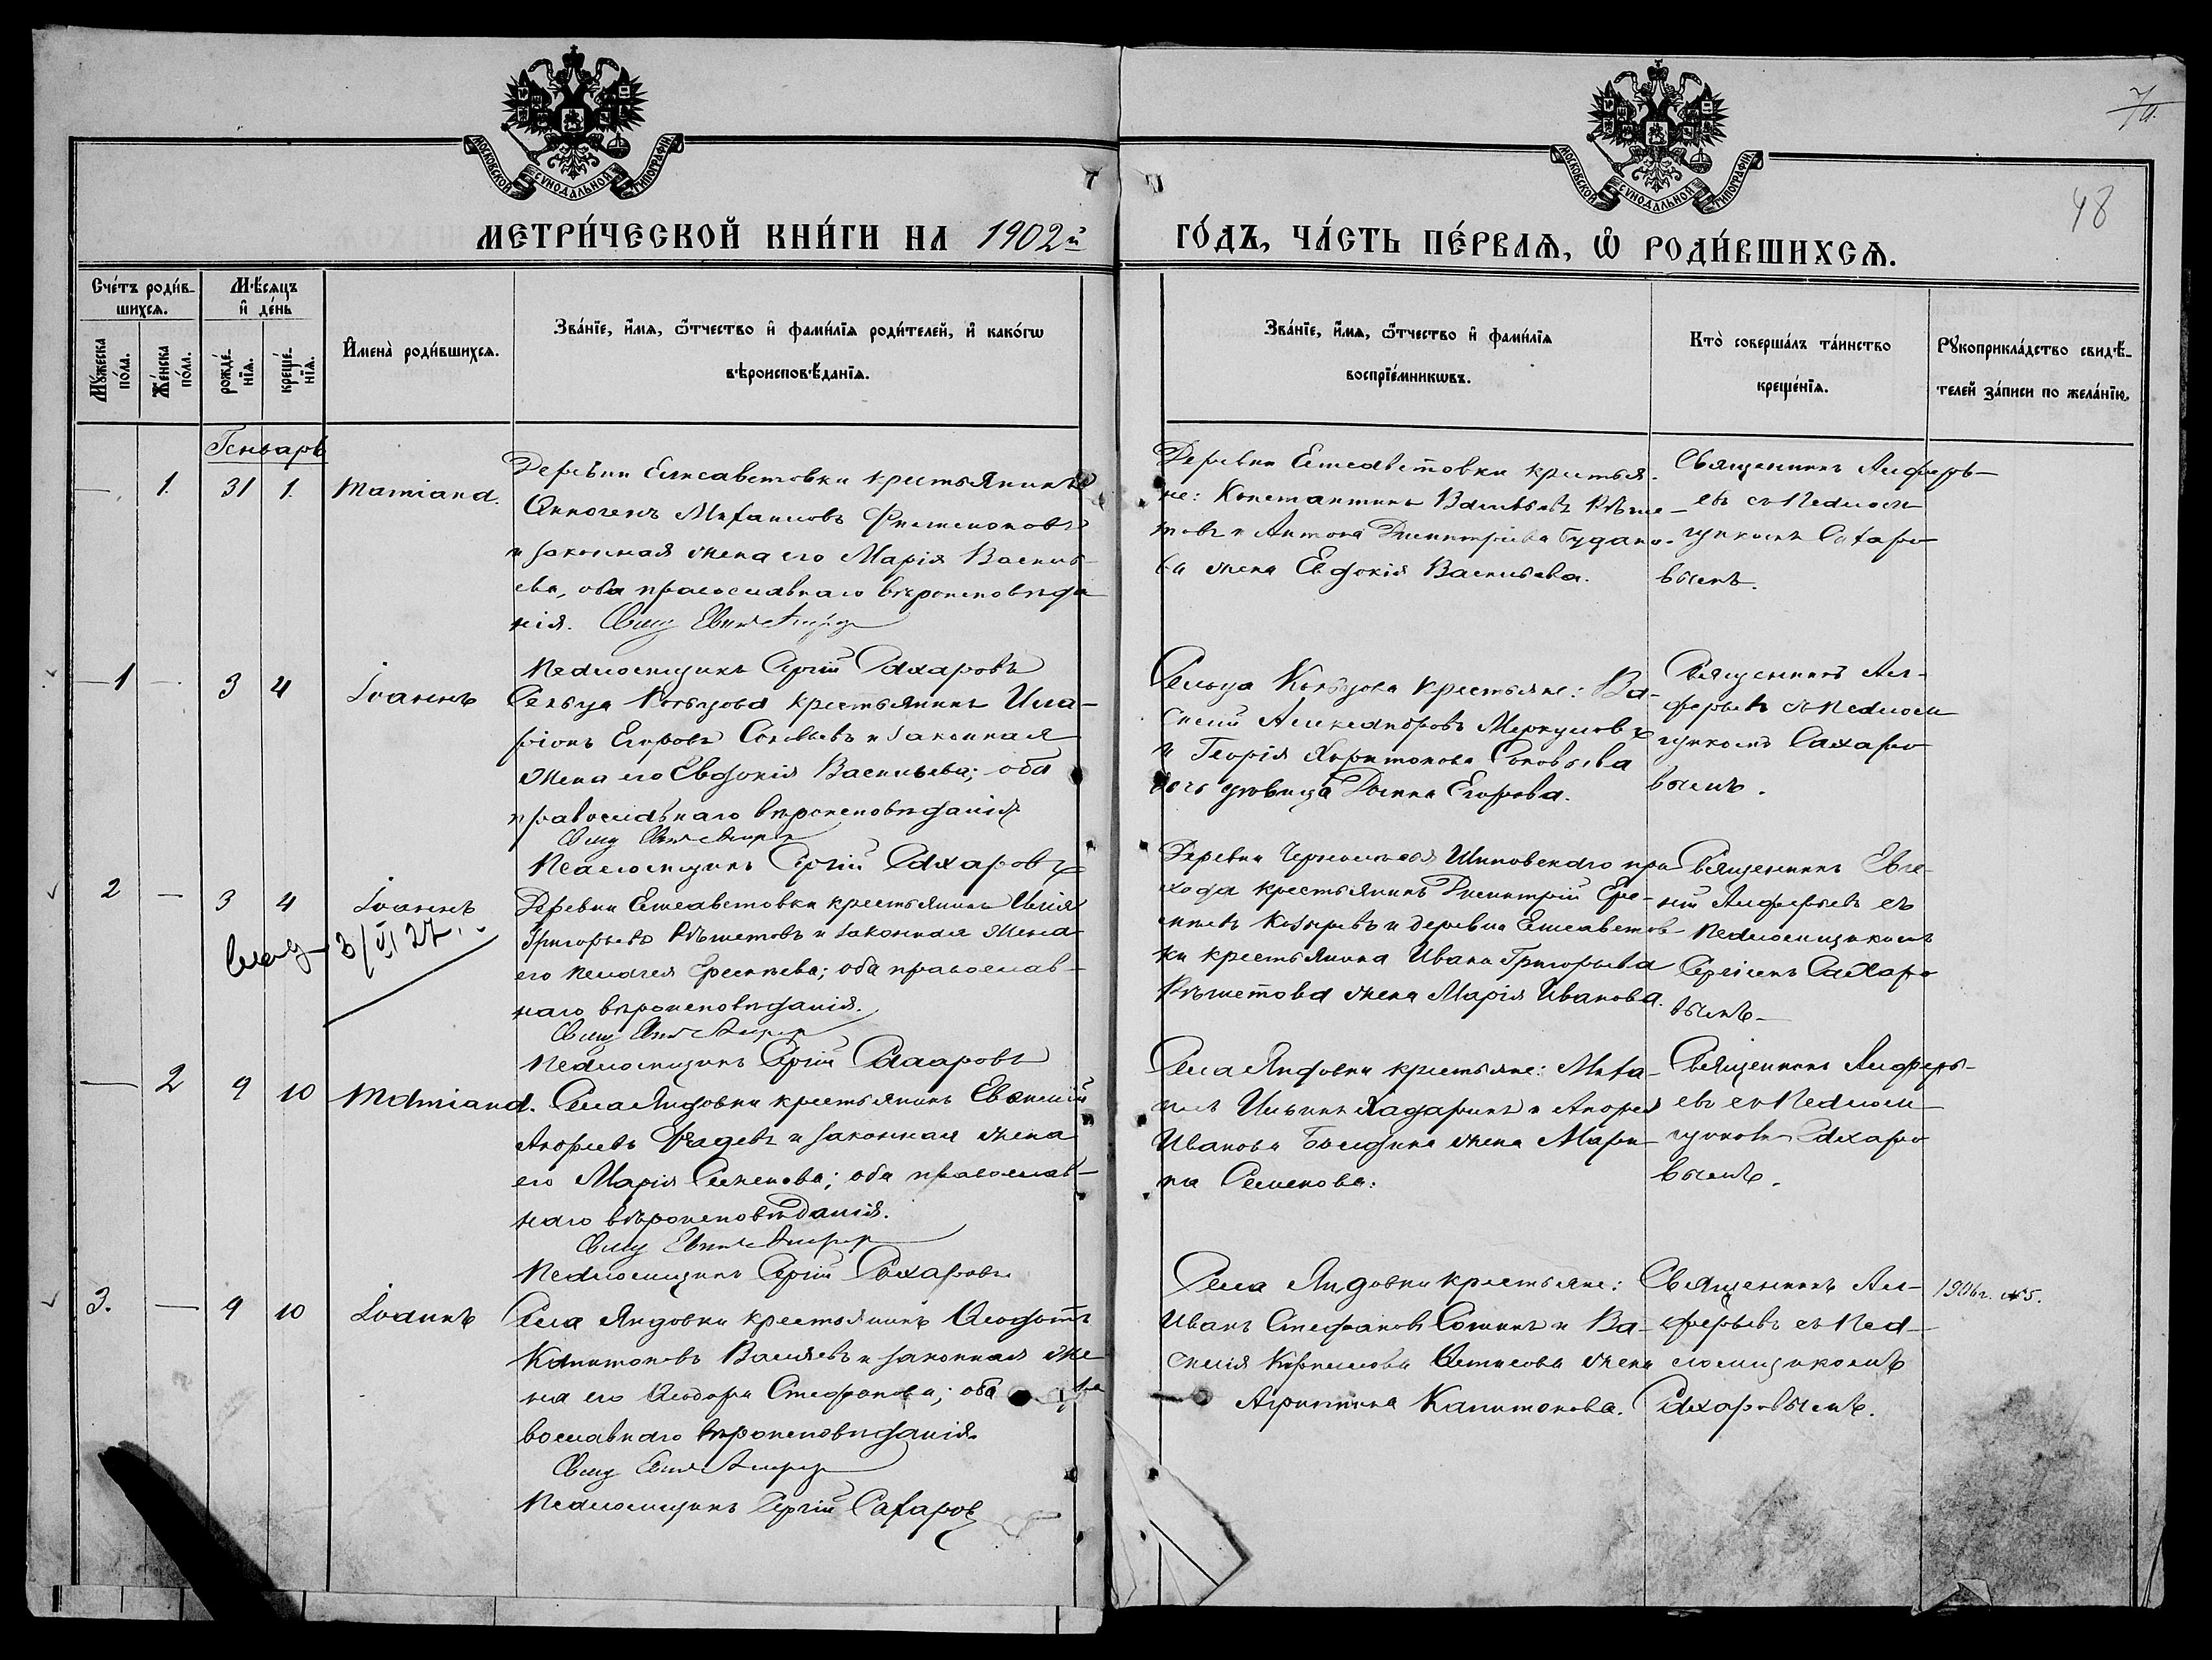 МОСКОВСКОЙ СѴНОДАЛЬНОЙ ТИПОГРАФІИ
МОСКОВСКОЙ СѴНОДАЛЬНОЙ ТИПОГРАФІИ
48
МЕТРИ́ЧЕСКОЙ КНИ́ГИ НА 1902й
ГО́ДЪ, ЧА́СТЬ ПЕ́РВАѦ, Ѡ҆ РОДИ́ВШИХСѦ.
Сче́тъ роди́в-
шихсѧ.
Мѣ́сѧцъ
и҆ де́нь
Мꙋ́жеска
по́ла.
Же́нска
по́ла.
рожде́-
нїѧ.
креще́-
нїѧ.
И҆мена̀ роди́вшихсѧ.
Зва́нїе, и҆́мѧ, ѻ҆́тчество и҆ фами́лїѧ роди́телей, и҆ како́гѡ
вѣроисповѣ́данїѧ.
Зва́нїе, и҆́мѧ, ѻ҆́тчество и҆ фами́лїѧ
воспрїе́мникѡвъ.
Кто̀ соверша́лъ та́инство
креще́нїѧ.
Рꙋкоприкла́дство свидѣ́-
телей за́писи по жела́нїю.
Генварь
— 1. 31 1. Татіана.
Деревни Елисаветовки крестьянинъ
Михаиловъ
и законная жена его Марія Василь-
ева, оба православнаго вѣроисповѣда
нія.
Псаломщикъ Сергій Сахаровъ
Деревни Елисаветовки крестья-
не: Константинъ Васильевъ Рѣше-
товъ и Антона Димитріева Будано-
ва жена Евдокія Васильева.
Священникъ Алферь-
евъ съ Псаломщ
икомъ Сахаро
вымъ.
1 — 3 4 Іоаннъ
Сельца Кольцова крестьянинъ Ила-
ріонъ Егоровъ Соловьевъ и законная
жена его Евдокія Васильева; оба
православнаго вѣроисповѣданія
Псаломщикъ Сергій Сахаровъ
Сельца Кольцова крестьяне: Ва-
силій Александровъ Меркуловъ
и Георгія Харитонова Соловьева
дочь дѣвица Домна Егорова.
Священникъ Ал-
ферьевъ съ Псаломщ
икомъ Сахаро
вымъ.
2 — 3 4 Іоаннъ
3/VI 27
Деревни Елисаветовки крестьянинъ Илія
Григорьевъ Рѣшетовъ и законная жена
его Пелагея Еремеева; оба православ-
наго вѣроисповѣданія.
Псаломщикъ Сергій Сахаровъ
Деревни Шиповскаго при
хода крестьянинъ Димитрій Ере-
меевъ Козыревъ и деревни Елисаветов-
ки крестьянина Ивана Григорьева
Рѣшетова жена Марія Иванова.
Священникъ Евге-
ній Алферьевъ съ
Псаломщикомъ
Сергіемъ Сахаро
вымъ
— 2 9 10 Татіана.
Села Яндовки крестьянинъ Евсигній
Андреевъ и законная жена
его Марія Семенова; оба православ-
наго вѣроисповѣданія.
Псаломщикъ Сергій Сахаровъ
Села Яндовки крестьяне: Миха-
илъ Ильинъ и Андрея
Иванова жена Мари-
на Семенова.
Священникъ Алферь-
евъ съ Псаломщ
икомъ Сахаро
вымъ.
3. — 9 10 Іоаннъ
Села Яндовки крестьянинъ Ѳеодотъ
Капитоновъ и законная же
на его Ѳеодора Стефанова; оба
вославнаго вѣроисповѣданія
Псаломщикъ Сергій Сахаровъ
Села Яндовки крестьяне:
Иванъ Стефановъ и Ва-
силія Корнилова жена
Агриппина Капитонова.
Священникъ Ал-
ферьевъ съ Пса-
ломщикомъ
Сахаровымъ.
1906 г. №5.